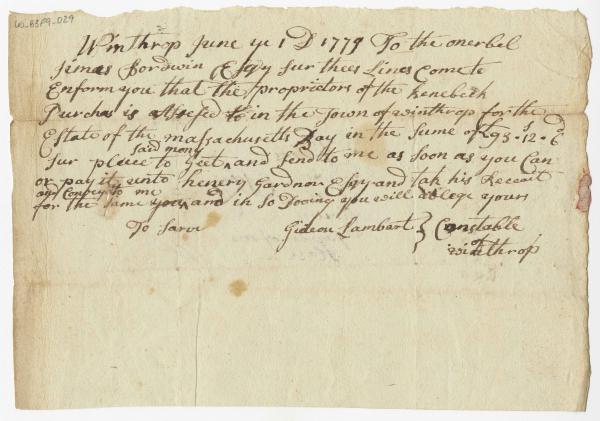 Winthrop June ye 1 D 1779 To the onerbel
Jimas Bordwin Esqy Sur thees Lines Comete
Enform you that the propriators of the Kenebeck
Purchas is assesed in the Town of winthrop for the
Estate of the massachusetts Bay in the sume of £93-12-6
said mony
Sur pleace to Geet ^ and send to me as soon as you Can
or pay it unto henery Gardnor Esqy and tak his Receait
and Convey to me
for the same ^ and in so Dooing you will oblege yours
To Sarve Gideon Lambart } Constable
of
winthrop